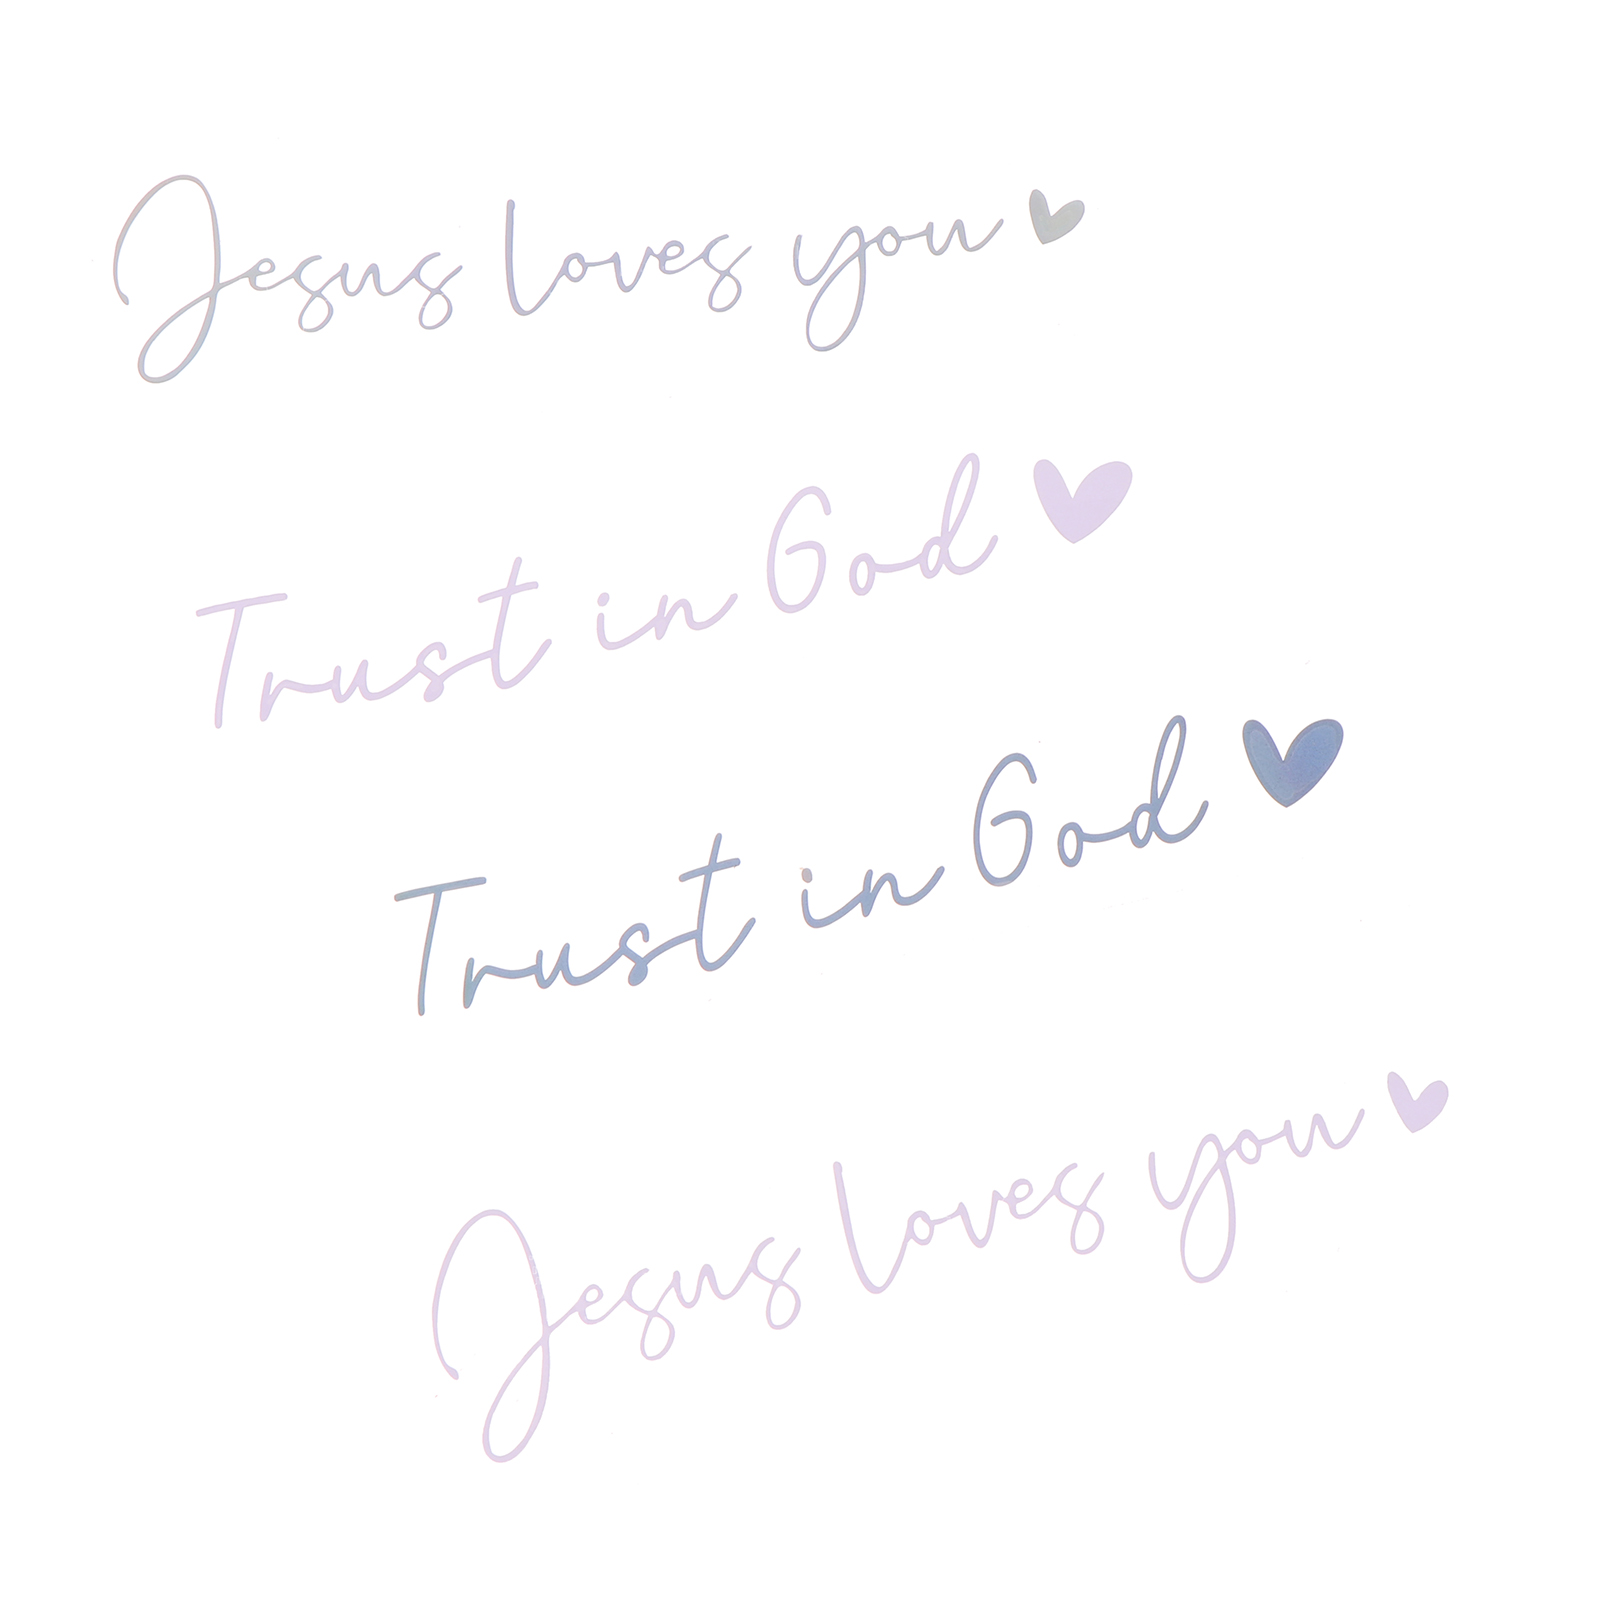 Jesus loves you
Trust in God
Trust in God
Jesus loves you